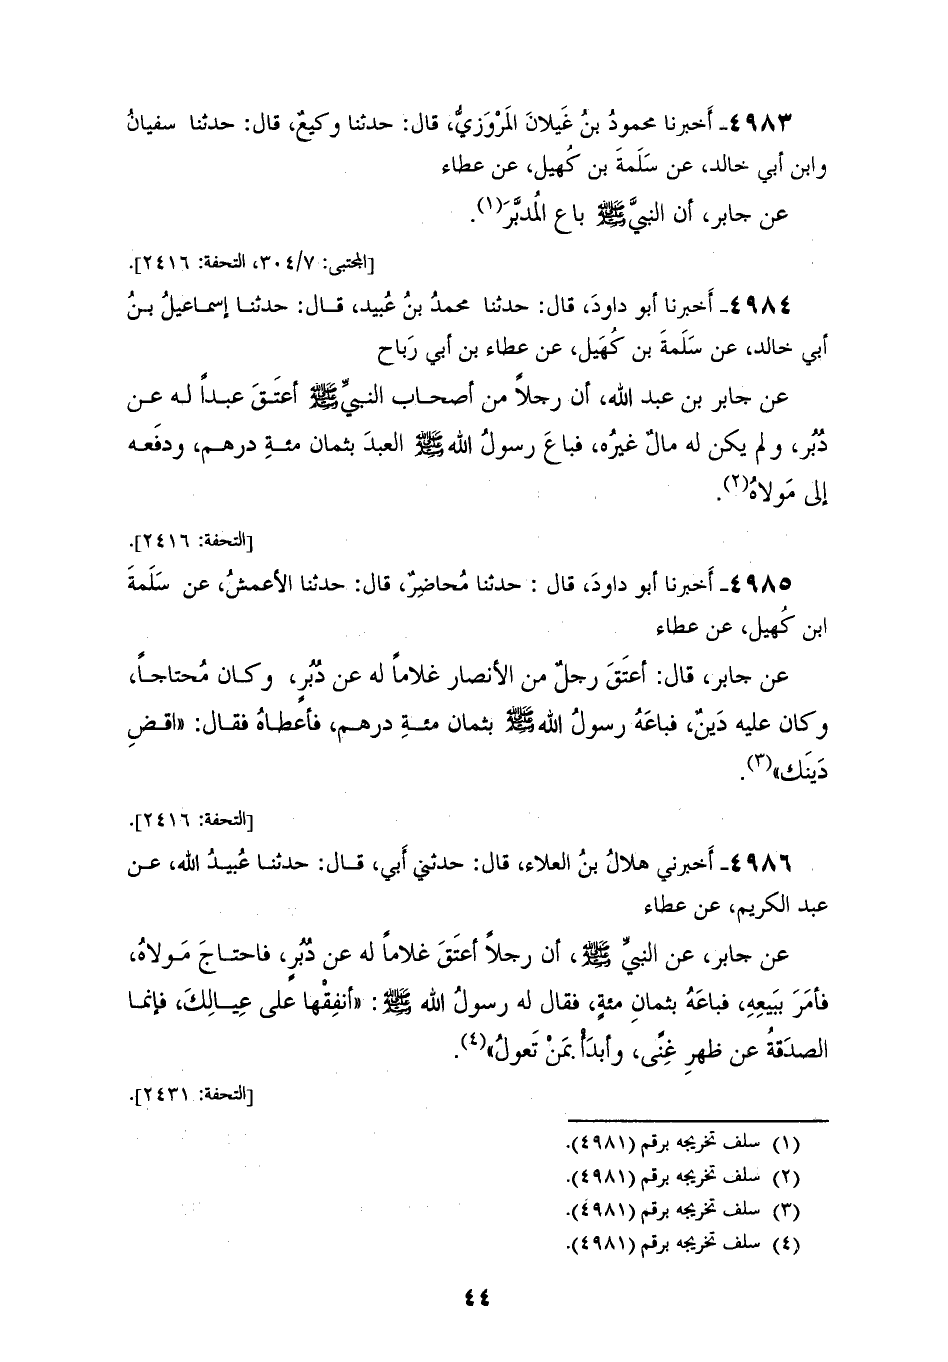 ٤٩٨٣ـ أَخبرنا محمودُ بنُ غَيلانَ المَرْوَزيُّ، قال: حدثنا وكيعٌ، قال: حدثنا سفيانُ
وابن أبي خالد، عن سَلَمةَ بن كُهيل، عن عطاء
عن جابر، أن النبيَّ ﷺ باع المُدبَّرَ(١).
[المجتبى: ٣٠٤/٧، التحفة: ٢٤١٦].
٤٩٨٤ـ أَخبرنا أبو داودَ، قال: حدثنا محمدُ بنُ عُبيد، قـال: حدثنـا إسمـاعيلُ بـنُ
أبي خالد، عن سَلَمةَ بن كُهَيل، عن عطاء بن أبي رَباح
عن جابر بن عبد الله، أن رجلاً من أصحـاب النبيِّ ﷺ أعتَـقَ عبـداً لـه عـن
دُبُر، ولم يكن له مالٌ غيرُه، فباعَ رسولُ الله ﷺ العبدَ بثمان مئـةِ درهـم، ودفَعـه
إلى مَولاهُ(٢).
[التحفة: ٢٤١٦].
٤٩٨٥ـ أَخبرنا أبو داودَ، قال : حدثنا مُحاضِرٌ، قال: حدثنا الأعمشُ، عن سَلَمةَ
ابن كُهيل، عن عطاء
عن جابر، قال: أعتَقَ رجلٌ من الأنصار غلاماً له عن دُبُرٍ، وكـان مُحتاجـاً،
وكان عليه دَينٌ، فباعَهُ رسولُ الله ﷺ بثمان مئـةِ درهـم، فأعطـاهُ فقـال: «اقـضِ
دَينَك»(٣).
[التحفة: ٢٤١٦].
٤٩٨٦ـ أَخبرني هلالُ بنُ العلاء، قال: حدثني أَبي، قـال: حدثنـا عُبيـدُ الله، عـن
عبد الكريم، عن عطاء
عن جابر، عن النبيِّ ﷺ، أن رجلاً أعتَقَ غلاماً له عن دُبُرٍ، فاحتـاجَ مَـولاهُ،
فأمَرَ ببَيعِهِ، فباعَهُ بثمانِ مئةٍ، فقال له رسولُ الله ﷺ: «أنفِقْها على عِيـالِكَ، فإنمـا
الصدَقةُ عن ظهرِ غِنًى، وأبدَأْ بمَنْ تَعولُ»(٤).
[التحفة: ٢٤٣١].
(١) سلف تخريجه برقم (٤٩٨١).
(٢) سلف تخريجه برقم (٤٩٨١).
(٣) سلف تخريجه برقم (٤٩٨١).
(٤) سلف تخريجه برقم (٤٩٨١).
٤٤